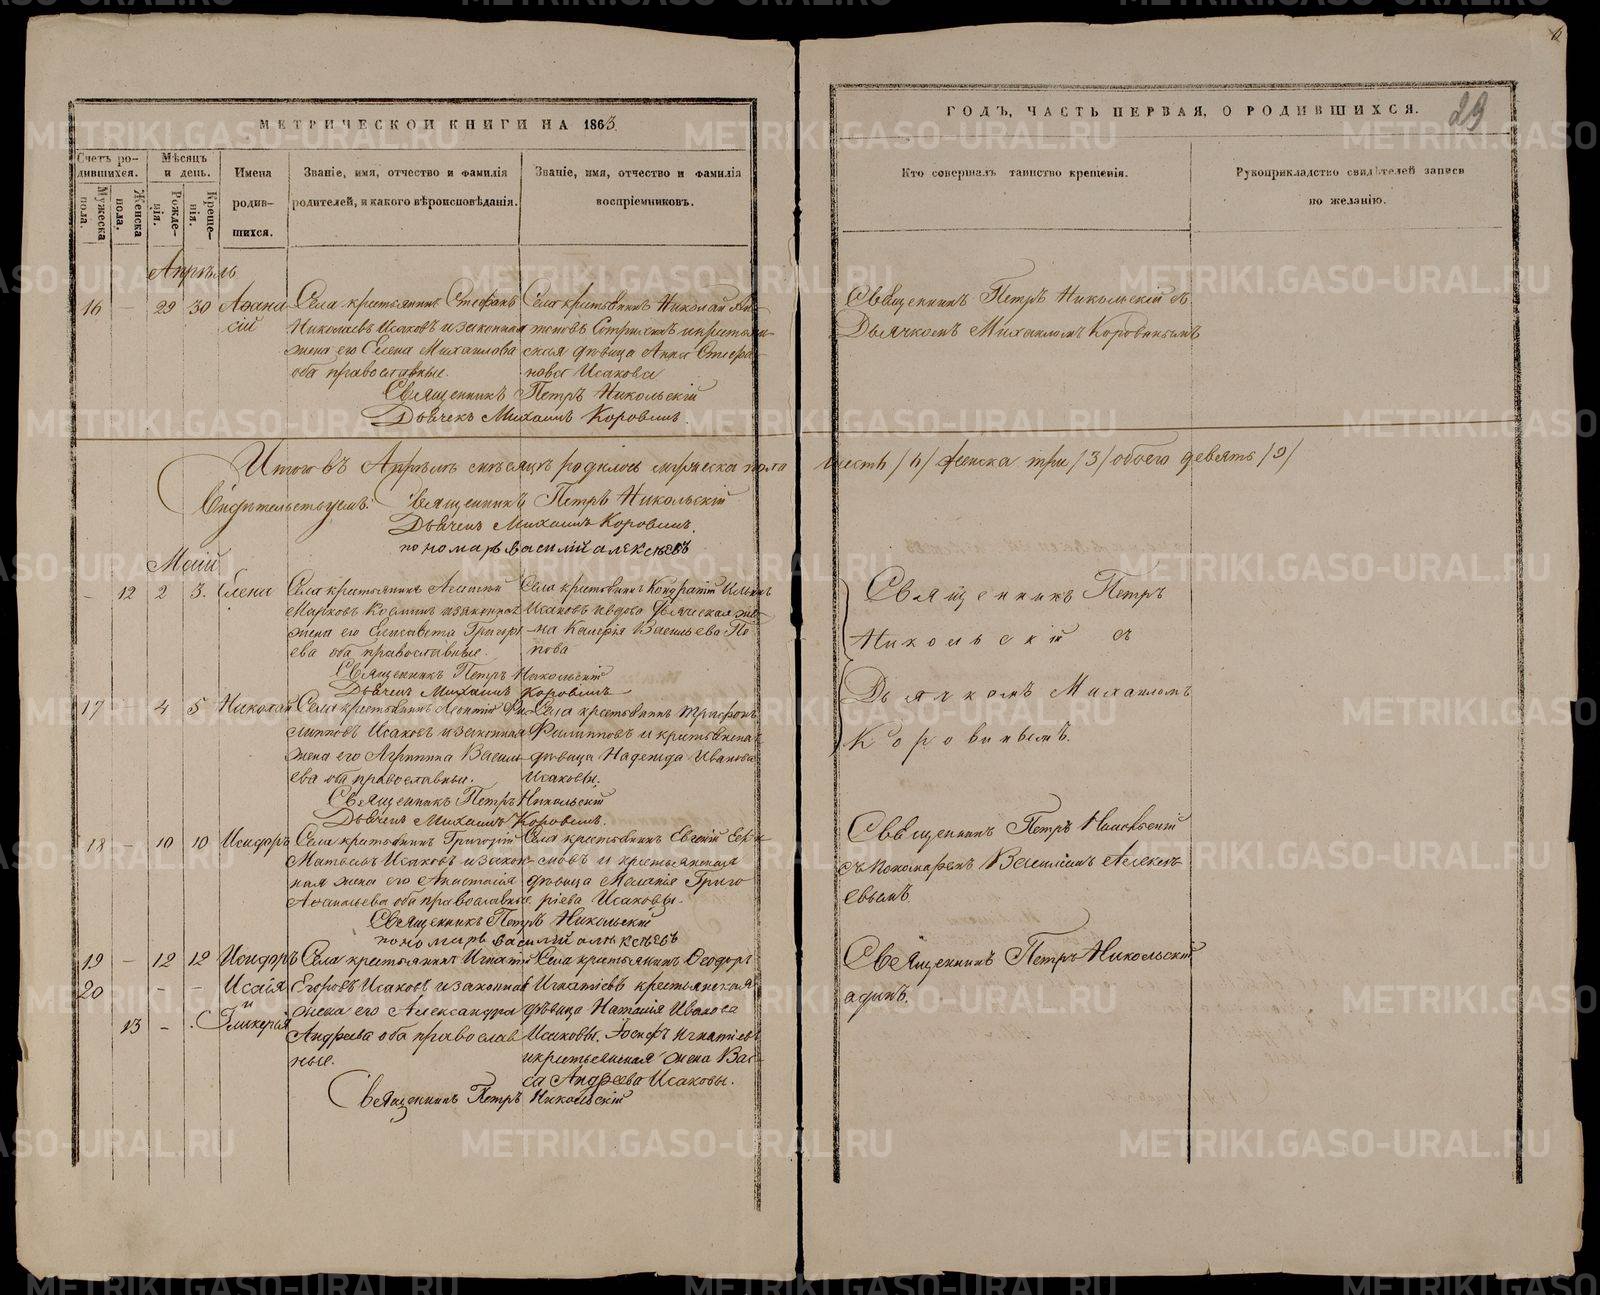 МЕТРИЧЕСКОЙ КНИГИ НА 1863.
Счетъ ро-
дившихся.
Мужеска
пола.
Женска
пола.
Мѣсяцъ
и день.
Рожде-
нія.
Креще-
нія.
Имена
родив-
шихся.
Званіе, имя, отчество и фамилія
родителей, и какого вѣроисповѣданія.
Званіе, имя, отчество и фамилія
воспріемниковъ.
Апрѣль
16 — 29 30 Афана-
сій
Села крестьянинъ Стефанъ
Николаевъ Исаковъ и законная
жена его Елена Михайлова
оба православные.
Села крестьянинъ Николай
и крестьян-
ская дѣвица Анна Стефа-
нова Исакова
Священникъ Петръ Никольскій
Дьячекъ Михаилъ Коровинъ.
Итого въ Апрѣлѣ мѣсяцѣ родилось мужеска пола
Свидѣтельствуемъ: Священникъ Петръ Никольскій
Дьячекъ Михаилъ Коровинъ.
пономарь василій алексѣевъ
Маій
— 12 2 3. Елена
Села крестьянинъ
Марковъ и законная
жена его Елисавета Григорь-
ева оба православные.
Села крестьянинъ Кондратій Ильинъ
Исаковъ и вдова Дьяческая же-
на Калерія Васильева По-
пова
Священникъ Петръ Никольскій
Дьячекъ Михаилъ Коровинъ
17 4 5 Николай
Села крестьянинъ Леонтій Фи-
липповъ Исаковъ и законная
жена его Агрипина Василь-
ева оба православные.
Села крестьянинъ Трифонъ
Филипповъ и крестьянская
дѣвица Надежда Иванова
Исаковы.
Священникъ Петръ Никольскій
Дьячекъ Михаилъ Коровинъ.
18 — 10 10 Исидоръ
Села крестьянинъ Григорій
Матвѣевъ Исаковъ и закон-
ная жена его Анастасія
Афанасьева оба православные.
Села крестьянинъ Евгеній
и крестьянская
дѣвица Меланія Григо-
ріева Исаковы.
Священникъ Петръ Никольскій
пономарь василій алексѣевъ
19 — 12 12 Исидоръ
20 — — Исаія
и
13 — . Гликерія
Села крестьянинъ Игнатій
Егоровъ Исаковъ и законная
жена его Александра
Андреева оба православ-
ные.
Села крестьянинъ Феодоръ
Игнатіевъ крестьянская
дѣвица Наталія Иванова
Исаковы. Іосифъ Игнатіевъ
и крестьянская жена Вас-
са Андреева Исаковы.
Священникъ Петръ Никольскій
ГОДЪ, ЧАСТЬ ПЕРВАЯ, О РОДИВШИХСЯ.
29
Кто совершалъ таинство крещенія.
Рукоприкладство свидѣтелей записи
по желанію.
Священникъ Петръ Никольскій съ
Дьячкомъ Михаиломъ Коровинымъ
шесть /6/ женска три /3/ обоего девять /9/
Священникъ Петръ
Никольскій съ
Дьячкомъ Михаиломъ
Коровинымъ.
Священникъ Петръ Никольскій
съ Пономаремъ Василіемъ Алексѣ-
евымъ.
Священникъ Петръ Никольскій
одинъ.
METRIKI.GASO-URAL.RU